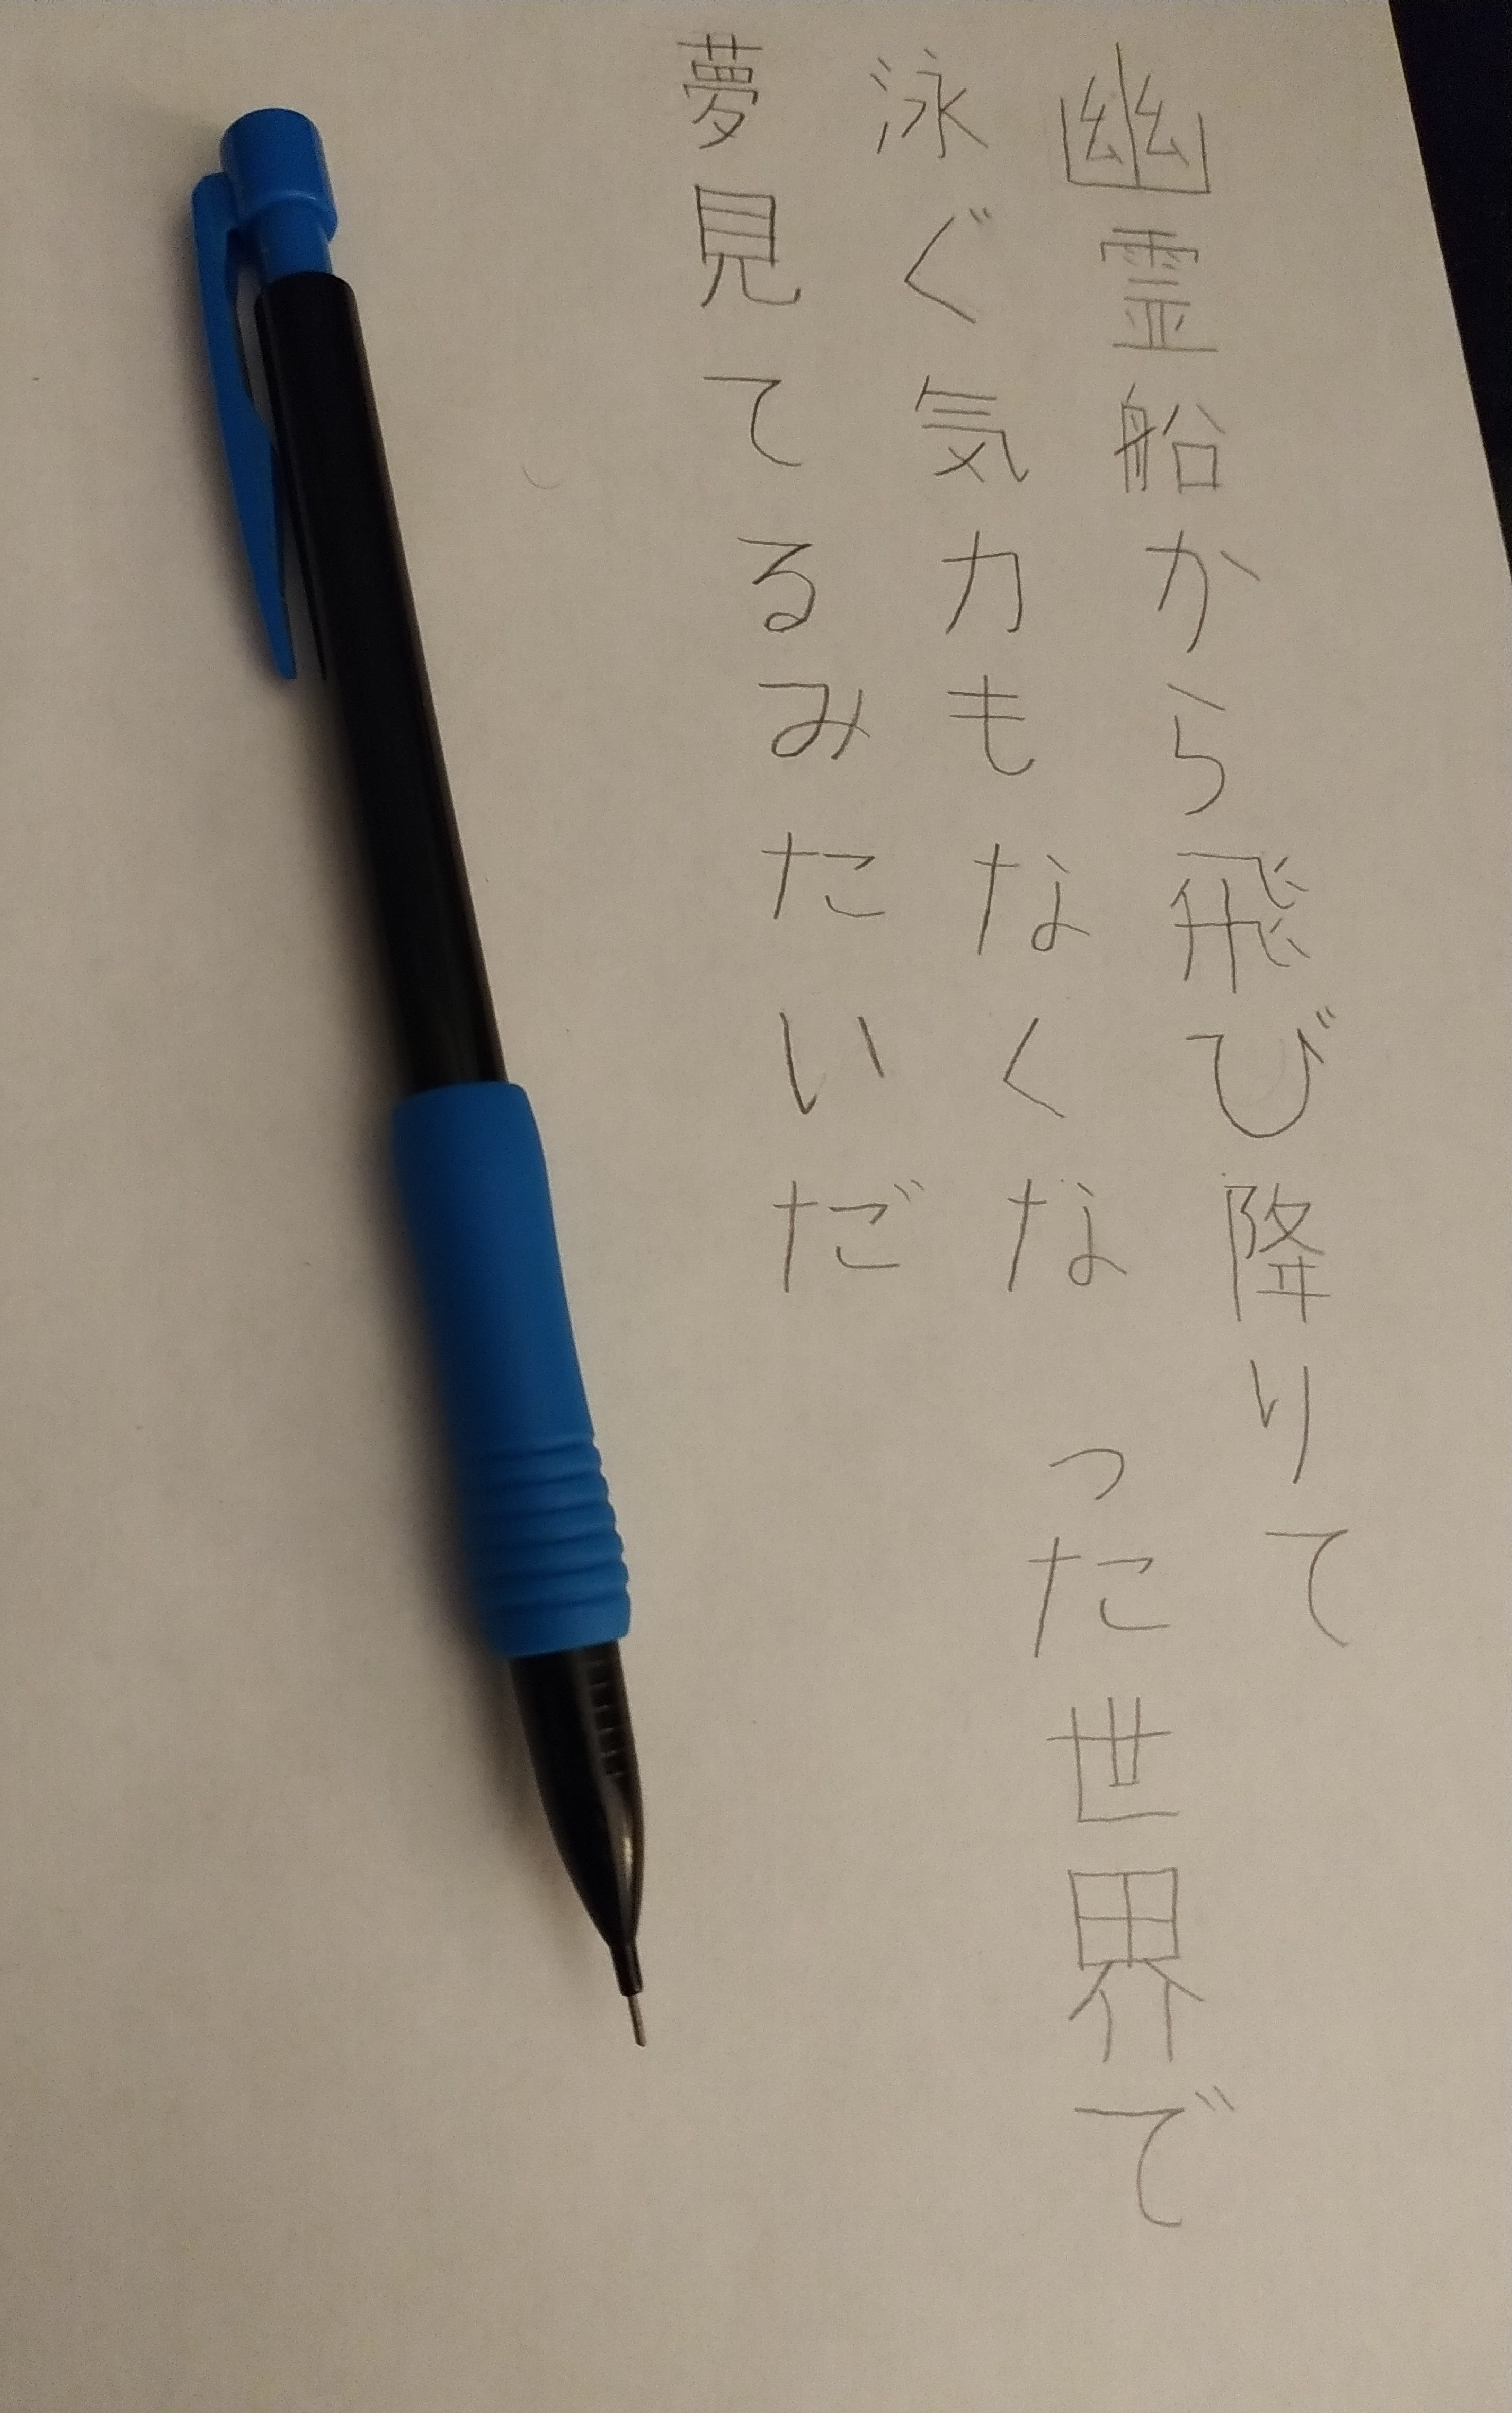 幽霊船から飛び降りて
泳ぐ気力もなくなった世界で
夢見てるみたいだ